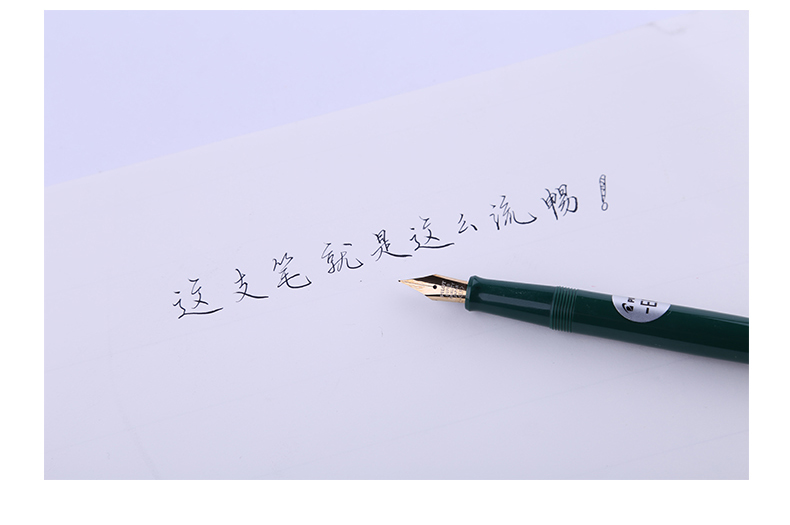 这支笔就是这么流暢！